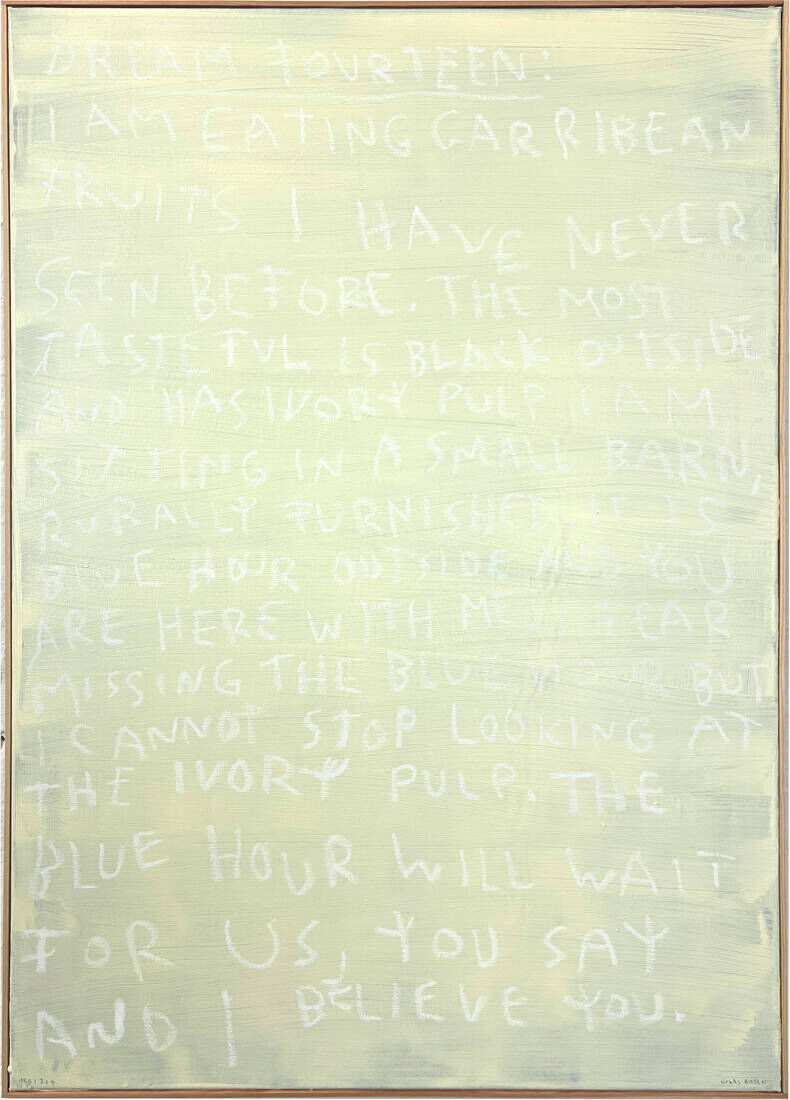 DREAM FOURTEEN:
I AM EATING CARRIBEAN
FRUITS I HAVE NEVER
SEEN BEFORE. THE MOST
TASTEFUL IS BLACK OUTSIDE
AND HAS IVORY PULP I AM
SITTING IN A SMALL BARN,
RURALLY FURNISHED. IT IS
BLUE HOUR OUTSIDE AND YOU
ARE HERE WITH ME. I FEAR
MISSING THE BLUE HOUR BUT
I CANNOT STOP LOOKING AT
THE IVORY PULP. THE
BLUE HOUR WILL WAIT
FOR US, YOU SAY
AND I BELIEVE YOU.